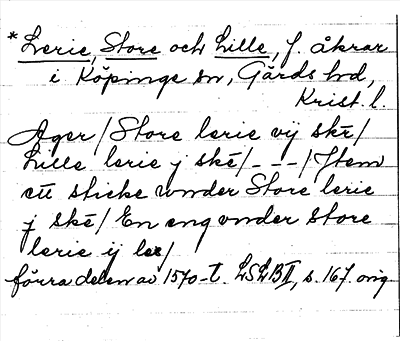 *Lerie, Store och Lille, f. åkrar
i Köpinge sn, Gärds hd,
Krist. l.
Ager / Store lerie vij skē /
Lille lerie j skē / - - - / Jtem
ett sticke vnder Store lerie
j skē / En eng vnder store
lerie ij les /
förra delen av 1570-t. LSLB II, s. 167. orig